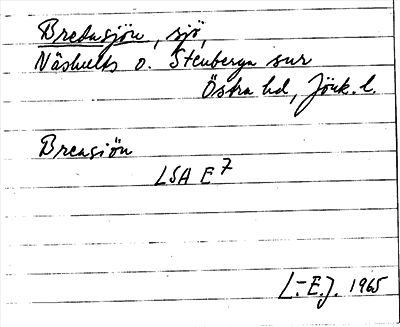 Bredasjön, sjö,
Näshults o. Stenberga snr
Östra hd, Jönk. l.
Breasiön
LSA E7
L.-E.J. 1965